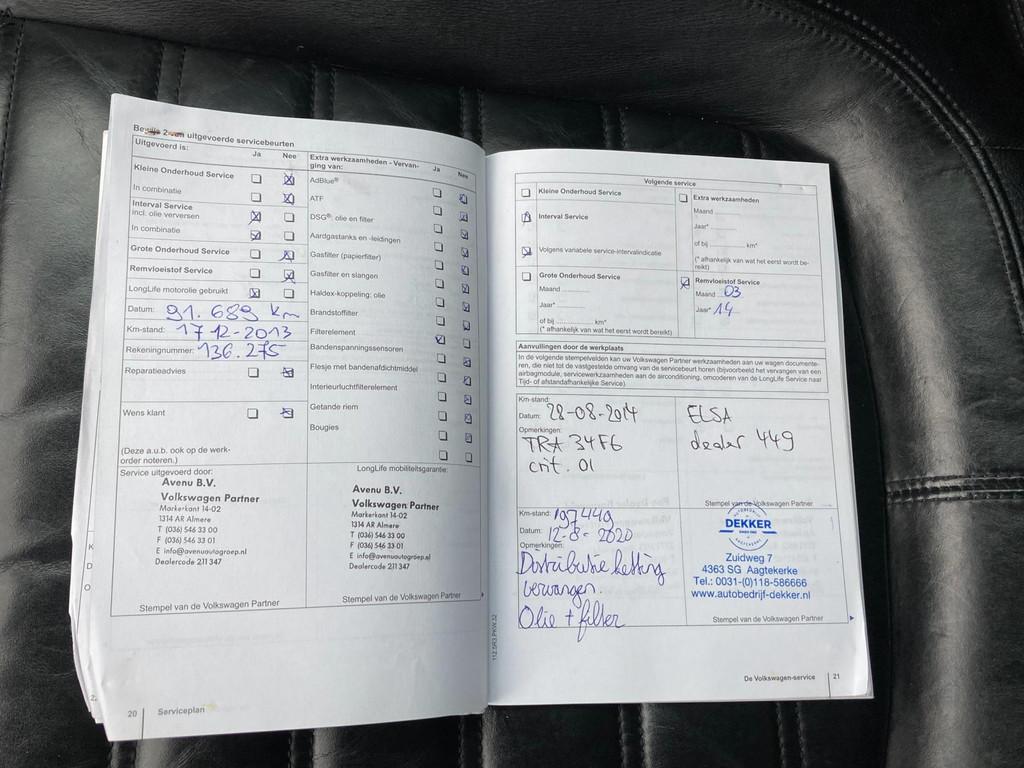 Bewijs 2 van uitgevoerde servicebeurten
Uitgevoerd is:
Ja
Nee
Kleine Onderhoud Service
In combinatie
Interval Service
incl. olie verversen
In combinatie
Grote Onderhoud Service
Remvloeistof Service
LongLife motorolie gebruikt
Datum: 91.689 km
Km-stand: 17-12-2013
Rekeningnummer: 136.275
Reparatieadvies
Wens klant
(Deze a.u.b. ook op de werk-
order noteren.)
Extra werkzaamheden - Vervan-
ging van:
Ja
Nee
AdBlue®
ATF
DSG®: olie en filter
Aardgastanks en -leidingen
Gasfilter (papierfilter)
Gasfilter en slangen
Haldex-koppeling: olie
Brandstoffilter
Filterelement
Bandenspanningssensoren
Flesje met bandenafdichtmiddel
Interieurluchtfilterelement
Getande riem
Bougies
Service uitgevoerd door:
Avenu B.V.
Volkswagen Partner
Markerkant 14-02
1314 AR Almere
T (036) 546 33 00
F (036) 546 33 01
E info@avenuautogroep.nl
Dealercode 211 347
Stempel van de Volkswagen Partner
LongLife mobiliteitsgarantie:
Avenu B.V.
Volkswagen Partner
Markerkant 14-02
1314 AR Almere
T (036) 546 33 00
F (036) 546 33 01
E info@avenuautogroep.nl
Dealercode 211 347
Stempel van de Volkswagen Partner
20
Serviceplan
Volgende service
Kleine Onderhoud Service
Interval Service
Volgens variabele service-intervalindicatie
Grote Onderhoud Service
Maand
Jaar*
of bij km*
(* afhankelijk van wat het eerst wordt bereikt)
Extra werkzaamheden
Maand
Jaar*
of bij km*
(* afhankelijk van wat het eerst wordt be-
reikt)
Remvloeistof Service
Maand 03
Jaar* 14
Aanvullingen door de werkplaats
In de volgende stempelvelden kan uw Volkswagen Partner werkzaamheden aan uw wagen documente-
ren, die niet tot de vastgestelde omvang van de servicebeurt horen (bijvoorbeeld het vervangen van een
airbagmodule, servicewerkzaamheden aan de airconditioning, omcoderen van de LongLife Service naar
Tijd- of afstandafhankelijke Service).
Km-stand:
Datum: 28-08-2014
Opmerkingen:
TRA 34F6
crit. 01
ELSA
dealer 449
Stempel van de Volkswagen Partner
Km-stand: 197449
Datum: 12-8-2020
Opmerkingen:
Distributie ketting
vervangen.
Olie + filter
AUTOBEDRIJF
DEKKER
AAGTEKERKE
Zuidweg 7
4363 SG Aagtekerke
Tel.: 0031-(0)118-586666
www.autobedrijf-dekker.nl
Stempel van de Volkswagen Partner
112.5R3.PKW.32
De Volkswagen-service
21